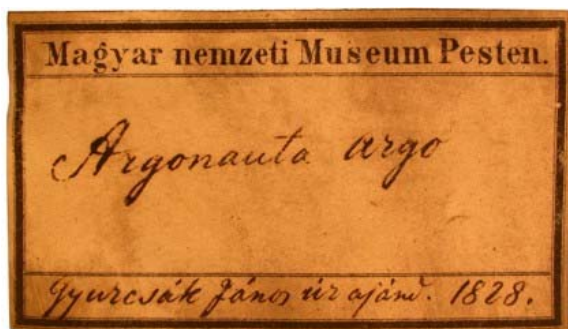 Magyar nemzeti Museum Pesten.
Argonauta argo
Gyurcsák János úr ajánd. 1828.